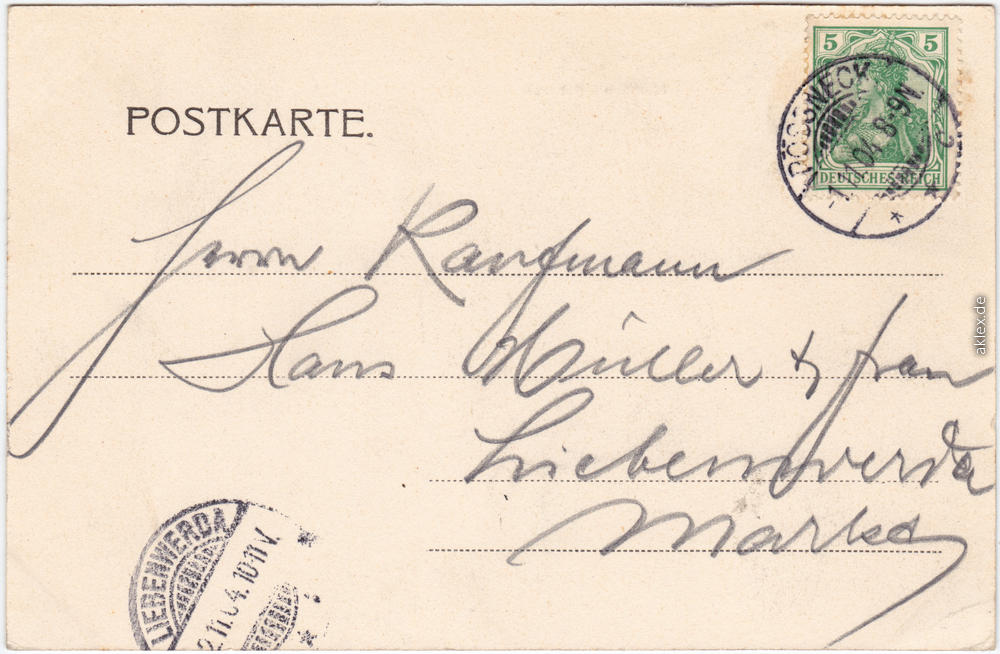 POSTKARTE.
5 5
DEUTSCHES REICH
PÖSSNECK
1.04. 8-9N.
Herrn Kaufmann
Hans Müller & Frau
Liebenwerda
Markt
LIEBENWERDA
2.11.04.10-11V.
aklex.de